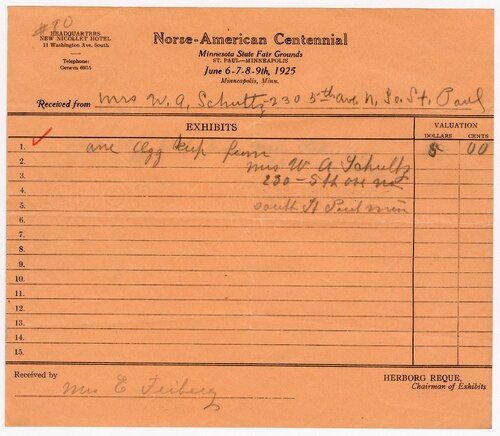 #90
HEADQUARTERS
NEW NICOLLET HOTEL
11 Washington Ave. South
Telephone:
Geneva 6955
Norse-American Centennial
Minnesota State Fair Grounds
ST. PAUL—MINNEAPOLIS
June 6-7-8-9th, 1925
Minneapolis, Minn.
Received from Mrs W. A. Schultz - 230 5th ave. N. So. St. Paul
EXHIBITS
VALUATION
DOLLARS CENTS
1. one egg cup from 5 00
2. Mrs W A Schultz
3. 230-5th ave
4.
5. South St Paul Min
6.
7.
8.
9.
10.
11.
12.
13.
14.
15.
Received by
Mrs E Feiberg
HERBORG REQUE,
Chairman of Exhibits